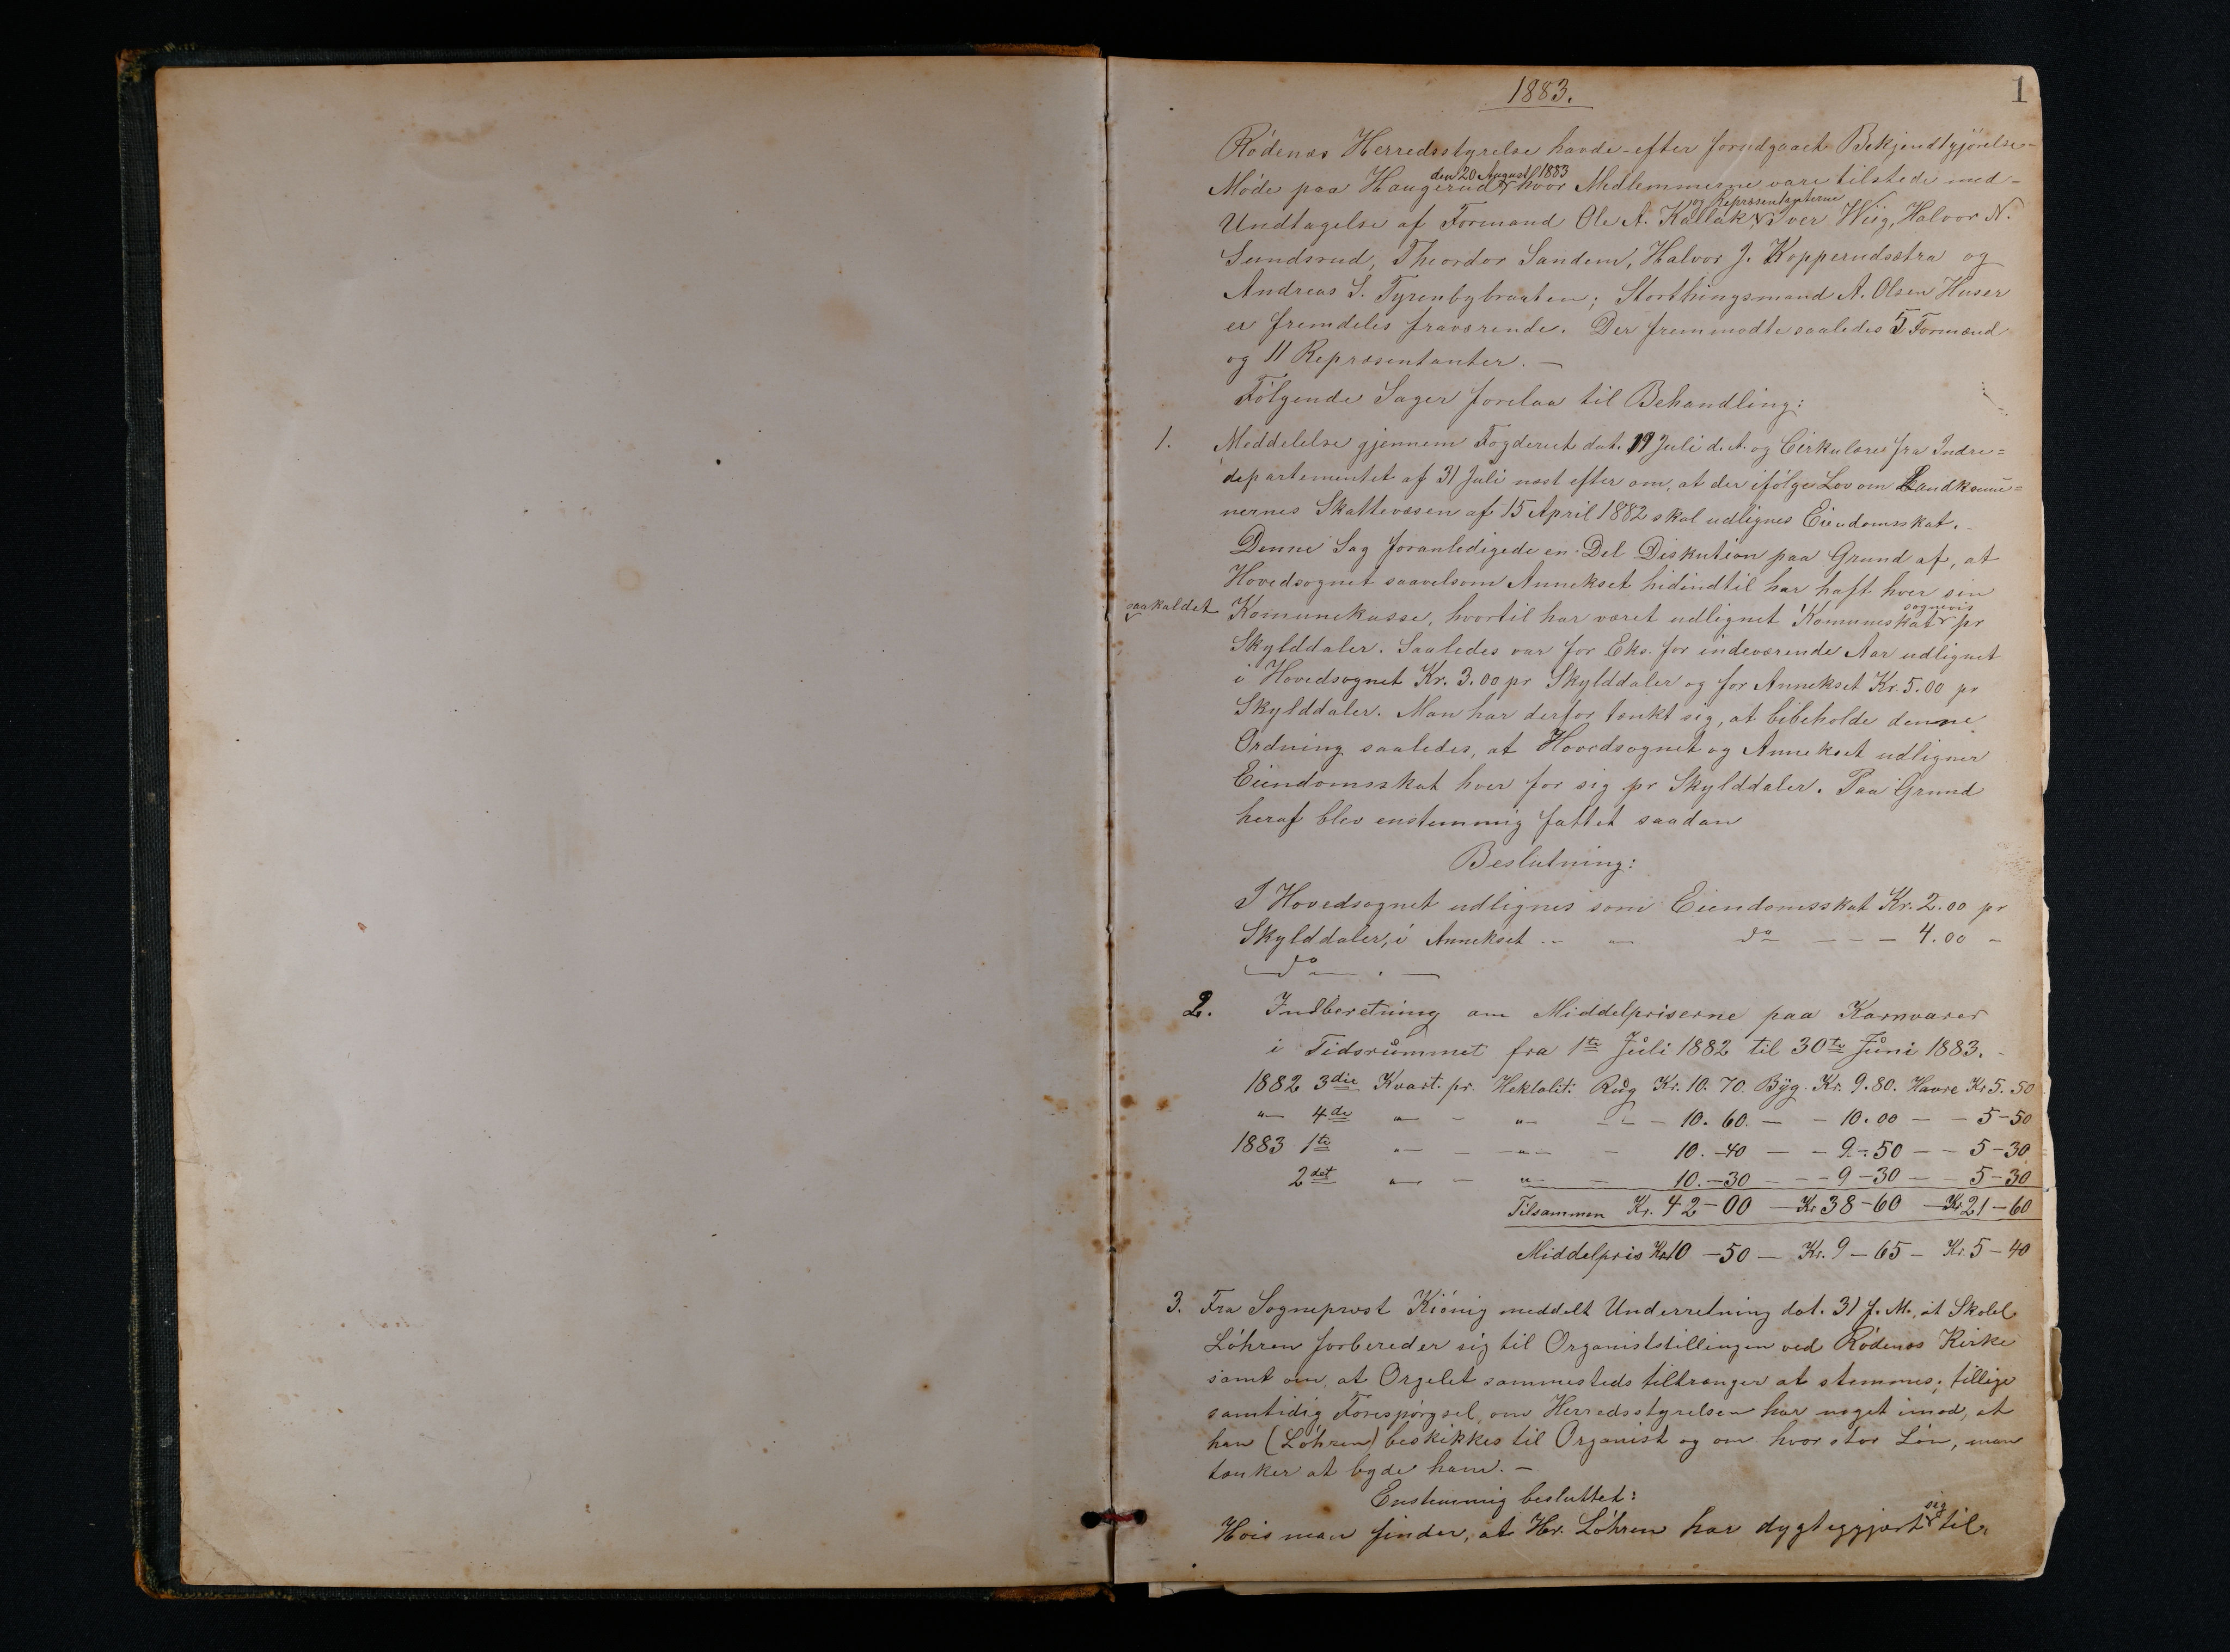 1883.
1
Rödenæs Herredsstyrelse havde efter forudgaaet Bekjendtgjörelse
Möde paa Haugerud den 20 August 1883 hvor Medlemmerne vare tilstede med
Undtagelse af Formand Ole A. Kallak og Repræsentanterne Iver Wiig, Halvor N.
Sundsrud, Theordor Sandem, Halvor J. Kopperudsætra og
Andreas S. Tyrenbybraaten; Storthingsmand A. Olsen Huser
er fremdeles fraværende. Der fremmödte saaledes 5 Formænd
og 11 Repræsentanter. —
Fölgende Sager forelaa til Behandling:
1. Meddelelse gjennem Fogderiet dat. 19 Juli d. A. og Cirkulære fra Indre=
departementet af 31 Juli næst efter om, at der ifölge Lov om Landkomu=
nernes Skattevæsen af 15 April 1882 skal udlignes Eiendomsskat. -
Denne Sag foranledigede en Del Diskution paa Grund af, at
Hovedsognet saavelsom Annekset hidindtil har haft hver sin
saakaldet Komunekasse, hvortil har været udlignet Komuneskat sognevis pr
Skylddaler. Saaledes var for Eks. for indeværende Aar udlignet
i Hovedsognet Kr. 3.00 pr Skylddaler og for Annekset Kr. 5.00 pr
Skylddaler. Man har derfor tænkt sig, at bibeholde denne
Ordning saaledes, at Hovedsognet og Annekset udligner
Eiendomsskat hver for sig pr Skylddaler. Paa Grund
heraf blev enstemmig fattet saadan
Beslutning:
I Hovedsognet udlignes som Eiendomsskat Kr. 2.00 pr
Skylddaler, i Annekset - " — do — - — 4.00 -
do . —
2. Indberetning om Middelpriserne paa Kornvarer
i Tidsrummet fra 1te Juli 1882 til 30te Juni 1883. -
1882 3die Kvart. pr. Hektolit: Rug Kr. 10.70. Byg. Kr. 9.80. Havre Kr 5.50
"— 4de "— - "— - - - 10.60. — - 10.00 — - 5-50
1883 1te "— - "— - 10.-40 — - 9-50 — - 5-30
2det "— - "— - 10.-30 — - 9-30 — - 5-30
Tilsammen Kr. 42-00 — Kr 38-60 — Kr 21-60
Middelpris Kr 10 -50 — Kr. 9 - 65 - Kr. 5 - 40
3. Fra Sogneprest Kiönig meddelt Underretning dat. 31 f. M., at Skolel.
Löhren forbereder sig til Organiststillingen ved Rödenæs Kirke
samt om, at Orgelet sammesteds tiltrænger at stemmes; tillige
samtidig Forespörgsel, om Herredsstyrelsen har noget imod, at
han (Löhren) beskikkes til Organist og om hvor stor Lön, man
tænker at byde ham. —
Enstemmig besluttet:
Hvis man finder, at Hr. Löhren har dygtiggjort sig til